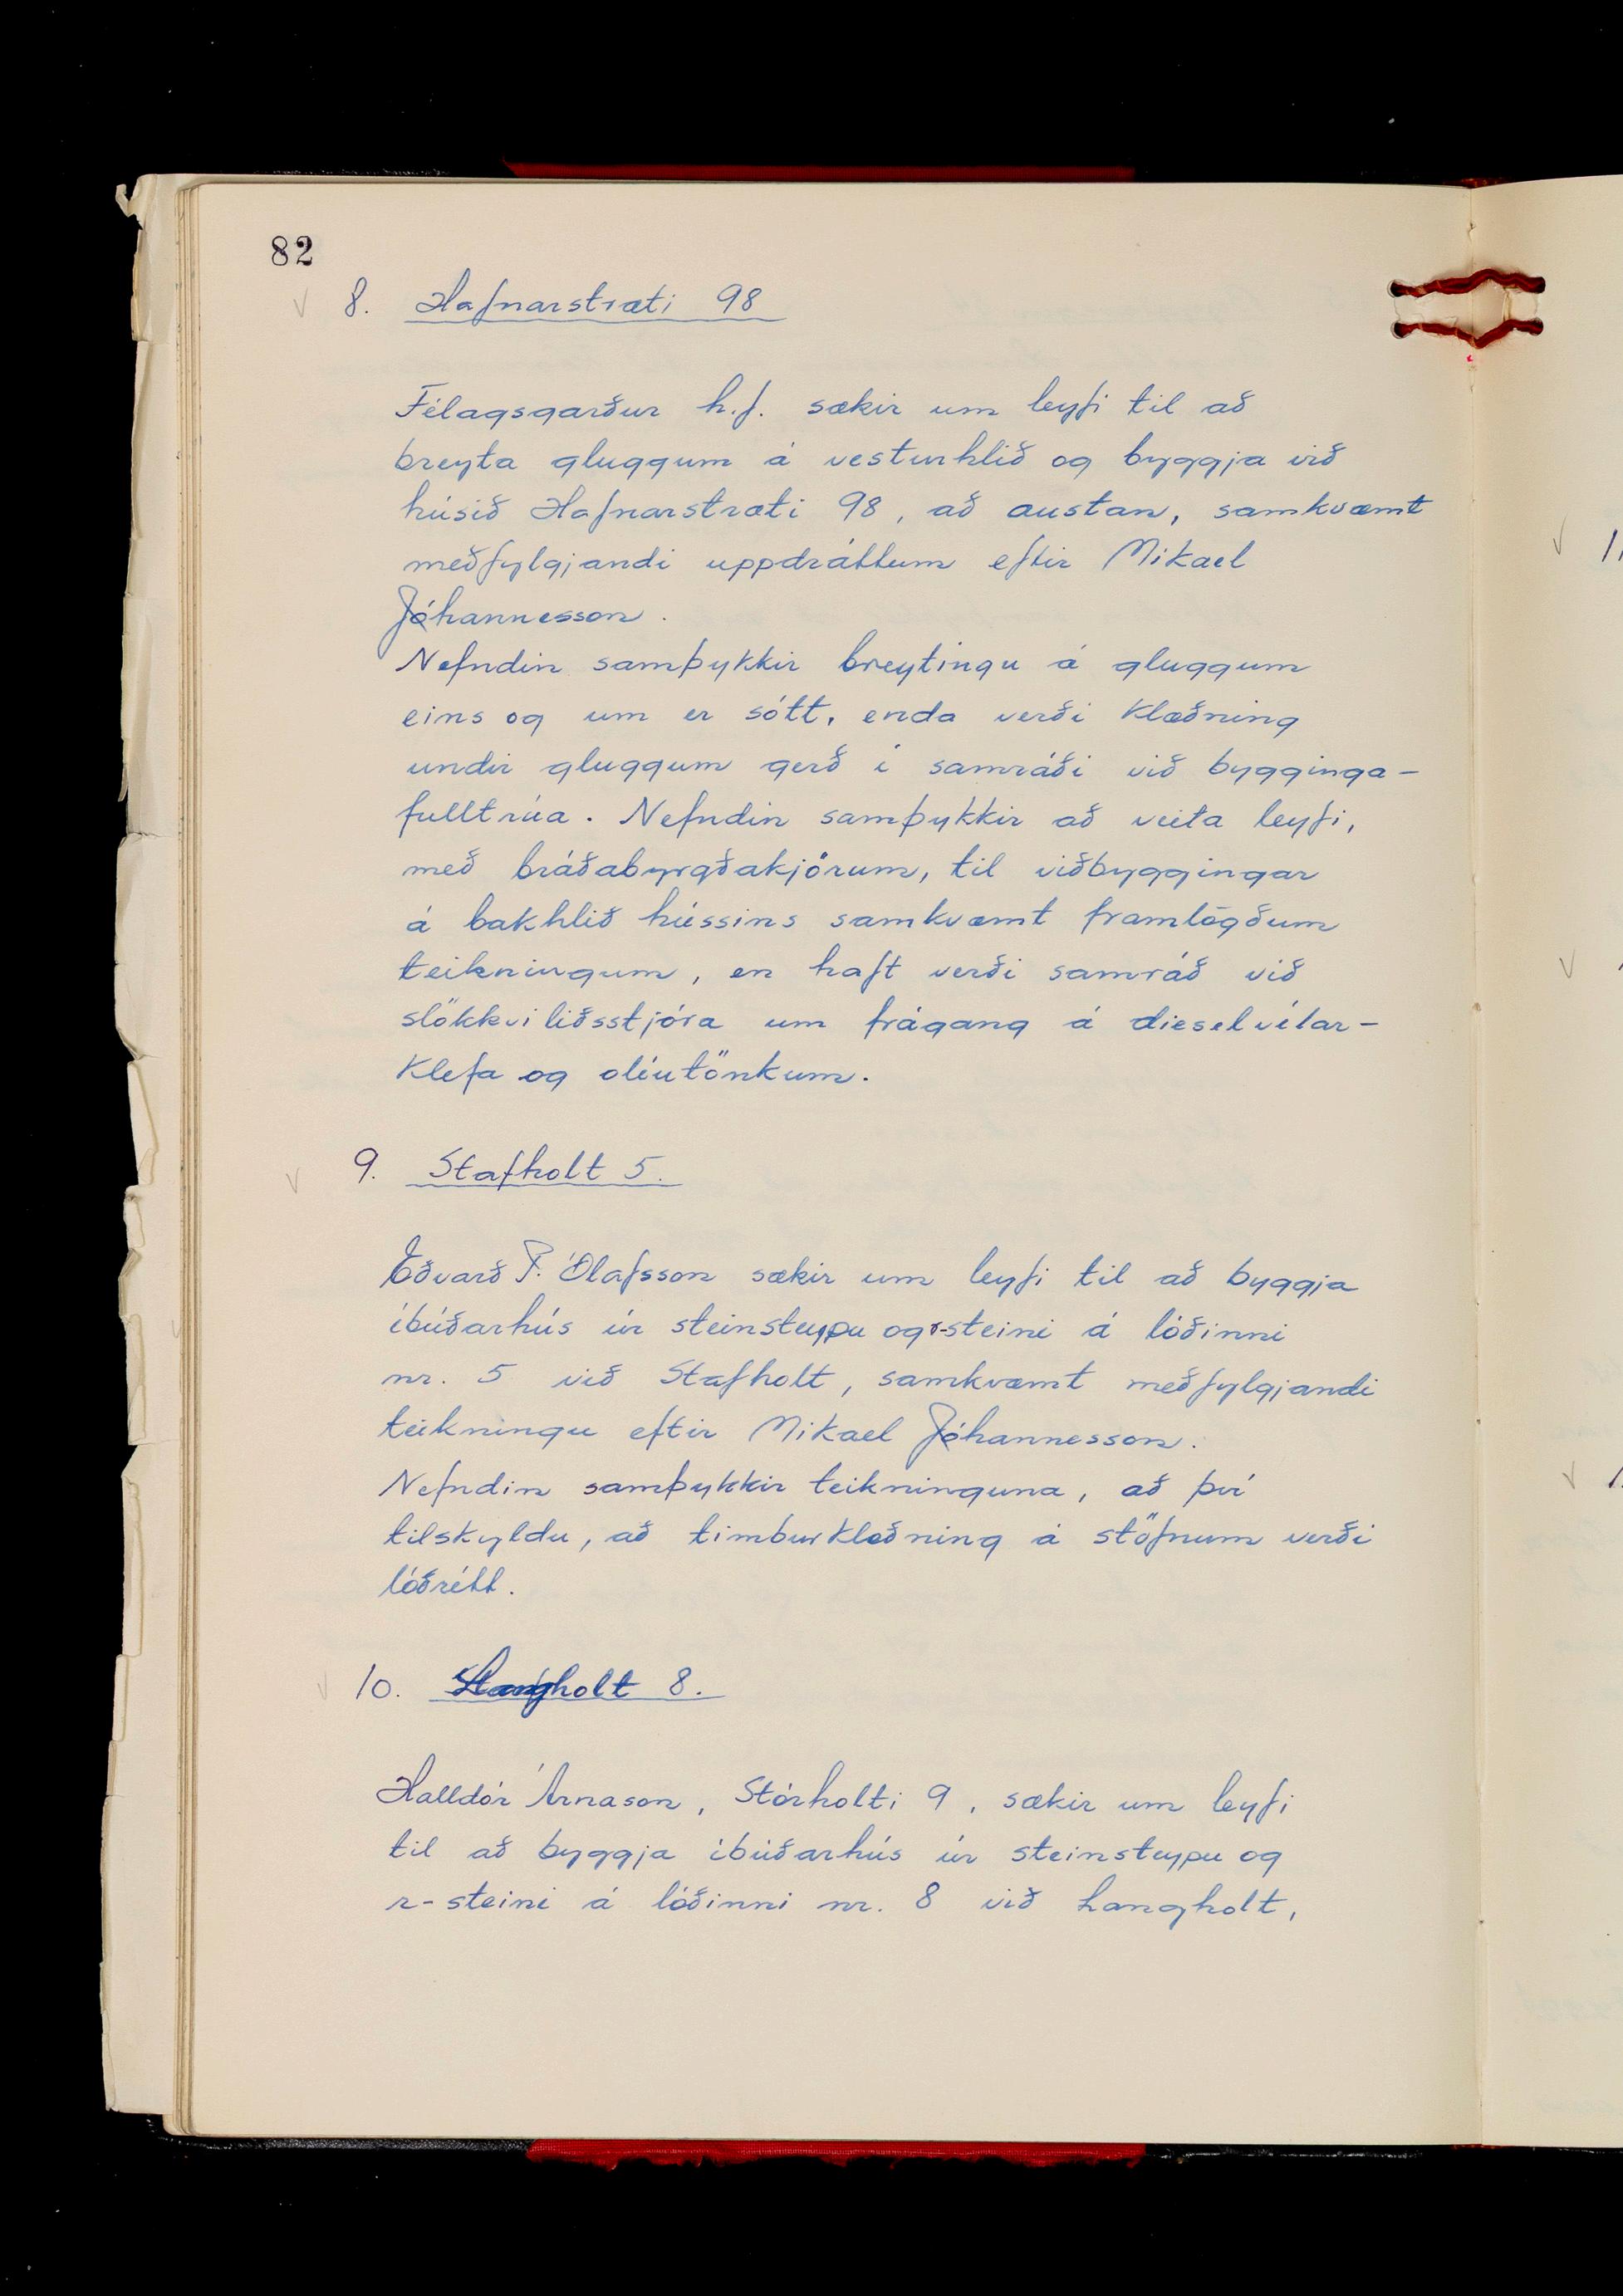 82
8. Hafnarstræti 98
Félagsgarður h.f. sækir um leyfi til að
breyta gluggum á vesturhlið og byggja við
húsið Hafnarstræti 98, að austan, samkvæmt
meðfylgjandi uppdráttum eftir Mikael
Jóhannesson.
Nefndin samþykkir breytingu á gluggum
eins og um er sótt, enda verði klæðning
undir gluggum gerð í samráði við bygginga-
fulltrúa. Nefndin samþykkir að veita leyfi,
með bráðabyrgðakjörum, til viðbyggingar
á bakhlið hússins samkvæmt framlögðum
teikningum, en haft verði samráð við
slökkviliðsstjóra um frágang á dieselvélar-
klefa og olíutönkum.
9. Stafholt 5.
Eðvarð P. Ólafsson sækir um leyfi til að byggja
íbúðarhús úr steinsteypu og r-steini á lóðinni
nr. 5 við Stafholt, samkvæmt meðfylgjandi
teikningu eftir Mikael Jóhannesson.
Nefndin samþykkir teikninguna, að því
tilskyldu, að timburklæðning á stöfnum verði
lóðrétt.
10. Langholt 8.
Halldór Árnason, Stórholti 9, sækir um leyfi
til að byggja íbúðarhús úr steinsteypu og
r-steini á lóðinni nr. 8 við Langholt,